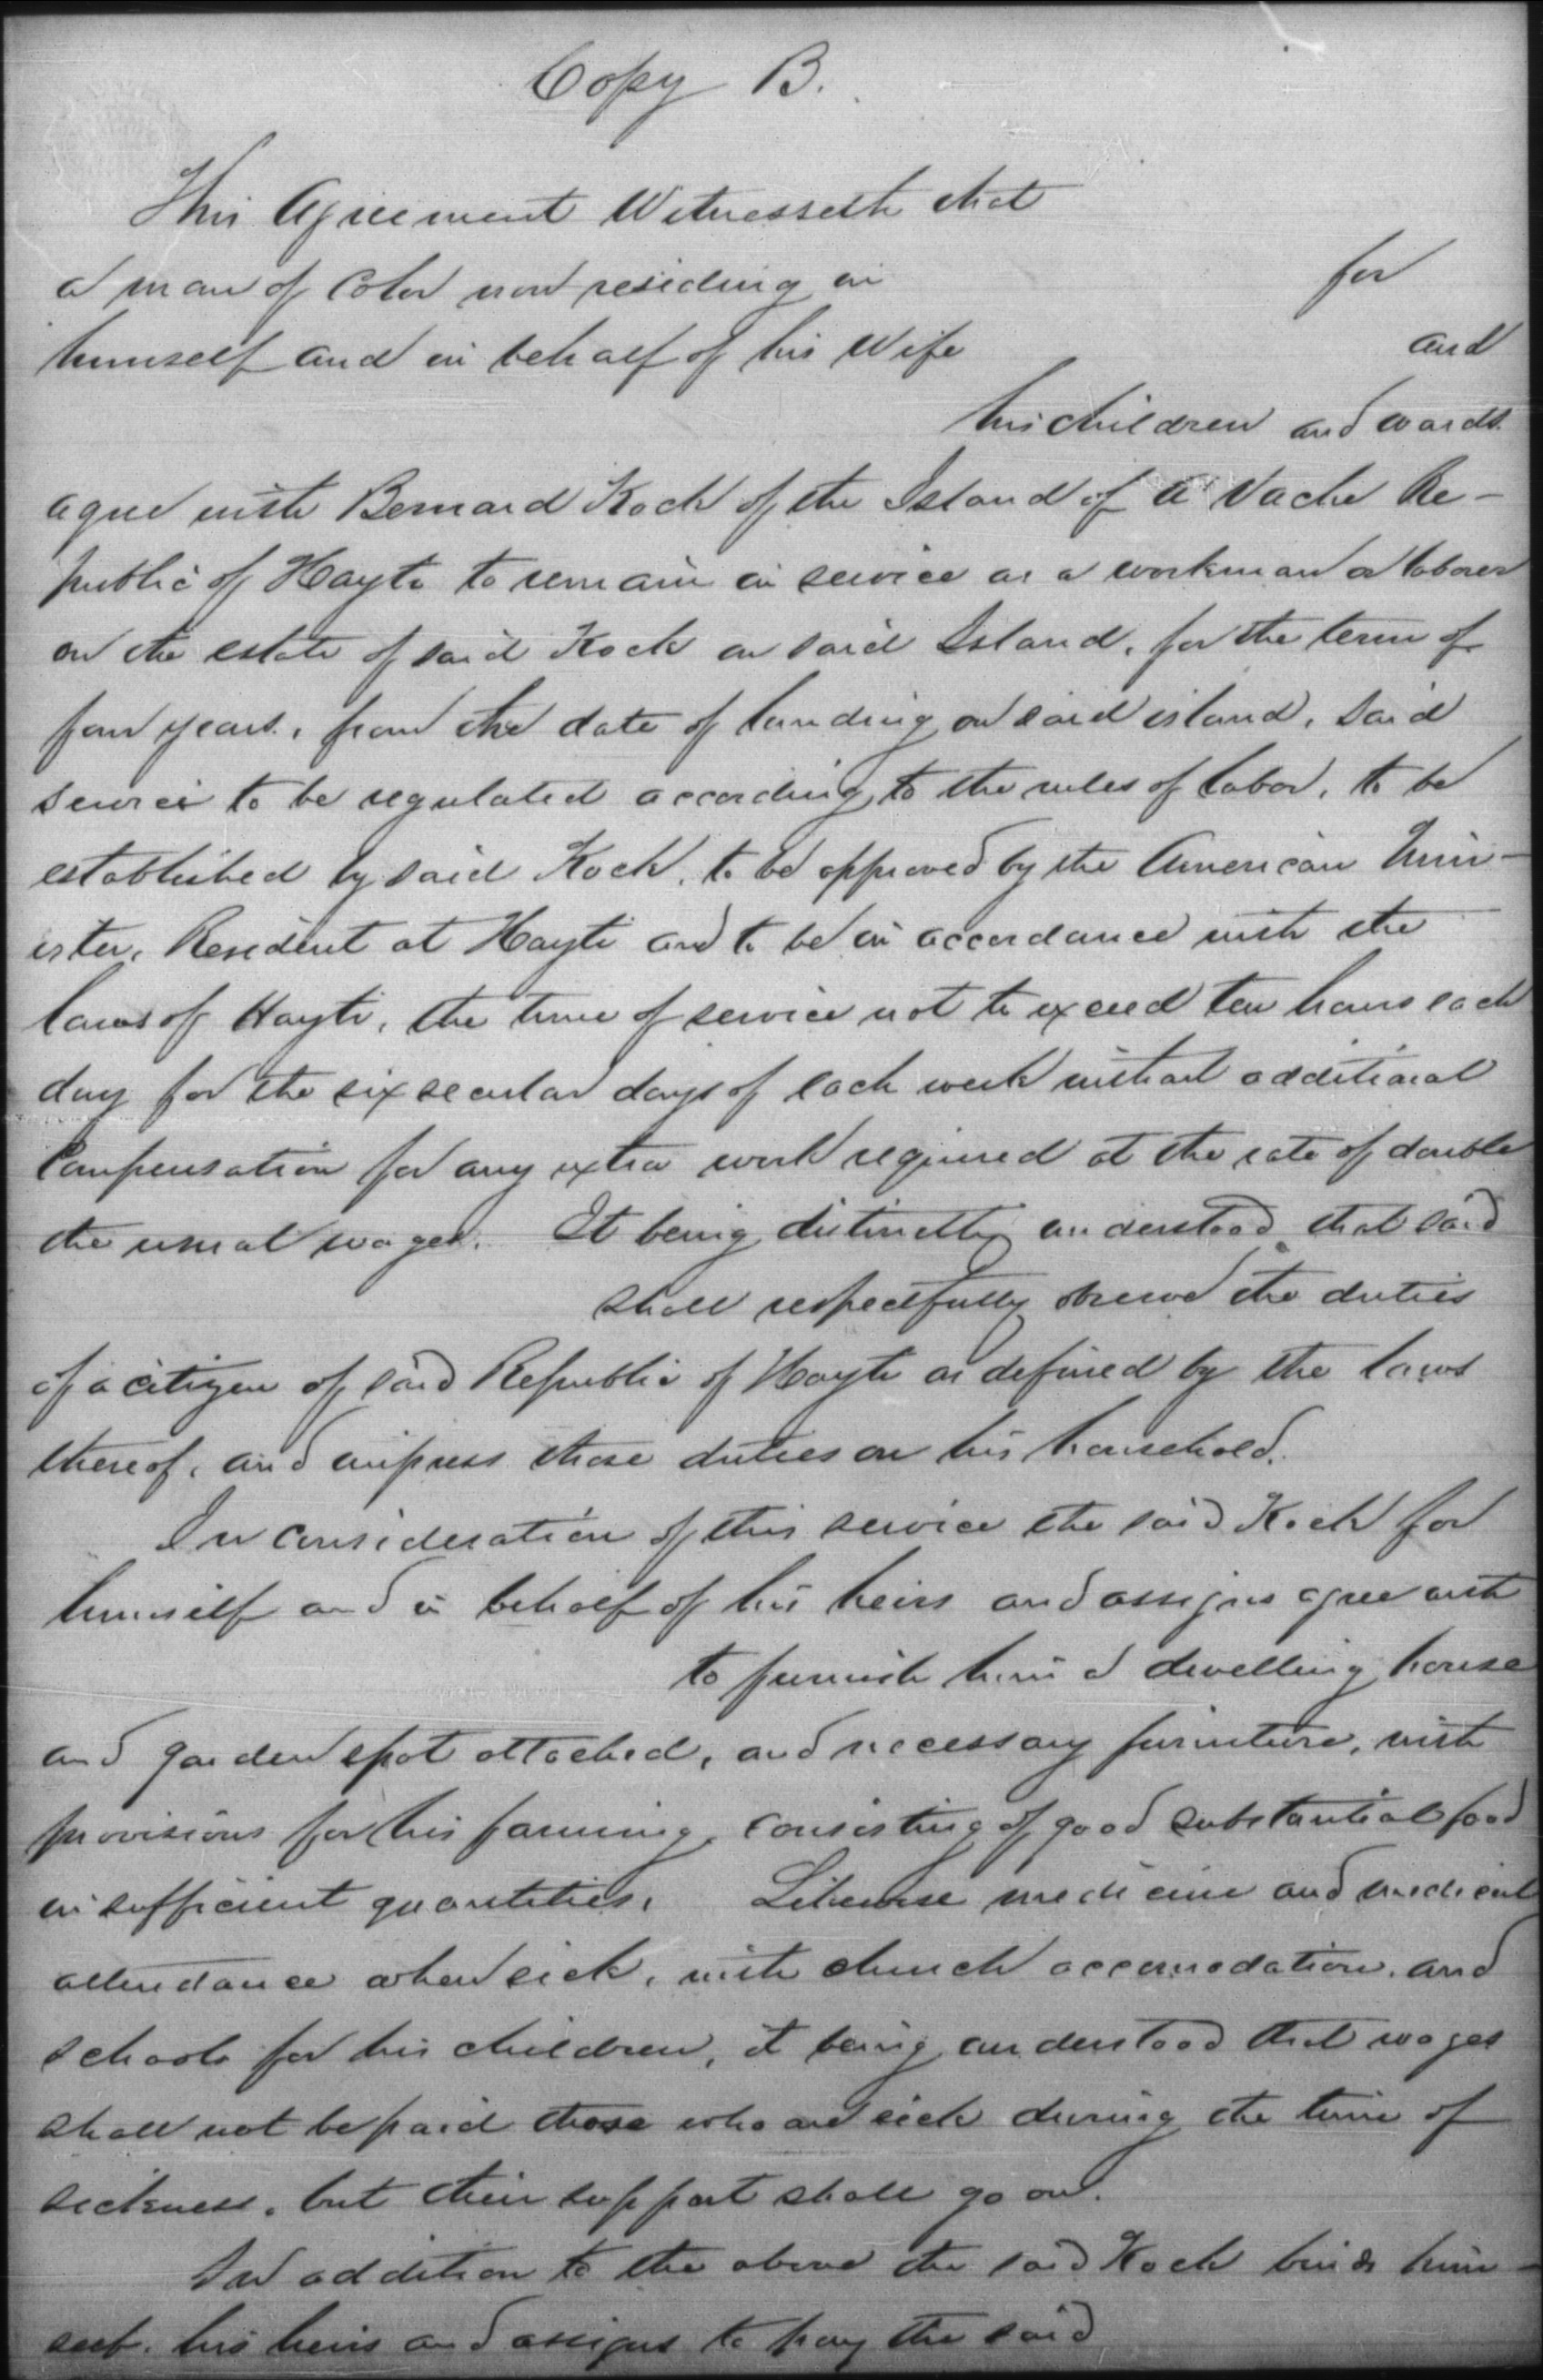 Copy B.
This Agreement Witnesseth that
a man of Color now residing in for
himself and in behalf of his Wife and
his children and wards
agree with Bernard Kock of the Island of A Vache Re-
public of Hayti to remain in service as a workman or laborer
on the estate of said Kock on said Island, for the term of
four years, from the date of landing on said island, said
service to be regulated according to the rules of labor, to be
established by said Kock, to be approved by the American Min-
ister, Resident at Hayti and to be in accordance with the
laws of Hayti, the time of service not to exceed ten hours each
day for the six secular days of each week without additional
Compensation for any extra work required at the rate of double
the usual wages. It being distinctly understood that said
shall respectfully observe the duties
of a citizen of said Republic of Hayti as defined by the laws
thereof, and impress those duties on his household.
In consideration of this service the said Kock for
himself and in behalf of his heirs and assigns agree with
to furnish him a dwelling house
and garden spot attached, and necessary furniture, with
provisions for his farming, consisting of good substantial food
in sufficient quantities. Likewise medicine and medical
attendance when sick, with church accomodation, and
schools for his children, it being understood that wages
shall not be paid those who are sick during the time of
sickness, but their support shall go on.
In addition to the above the said Kock binds him-
self, his heirs and assigns to pay the said